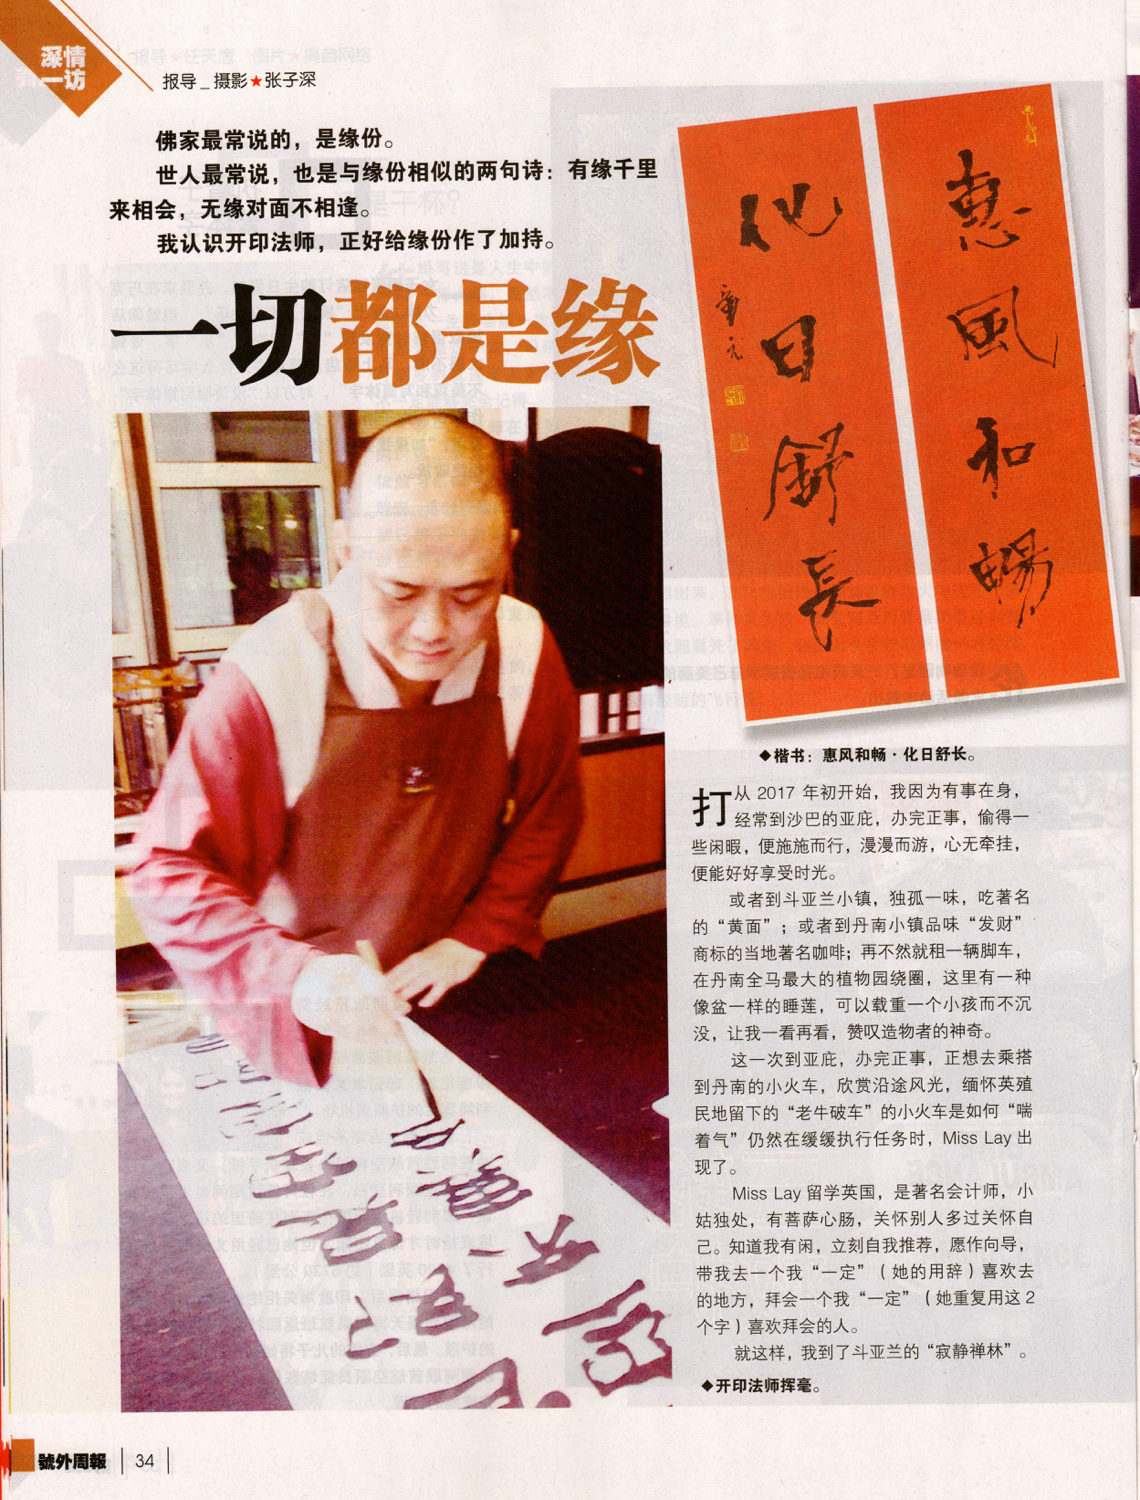 深情
一访
报导_摄影★张子深
佛家最常说的，是缘份。
世人最常说，也是与缘份相似的两句诗：有缘千里
来相会，无缘对面不相逢。
我认识开印法师，正好给缘份作了加持。
一切都是缘
惠風和暢
化日舒長
◆楷书：惠风和畅·化日舒长。
打从 2017 年初开始，我因为有事在身，
经常到沙巴的亚庇，办完正事，偷得一
些闲暇，便施施而行，漫漫而游，心无牵挂，
便能好好享受时光。
或者到斗亚兰小镇，独孤一味，吃著名
的“黄面”；或者到丹南小镇品味“发财”
商标的当地著名咖啡；再不然就租一辆脚车，
在丹南全马最大的植物园绕圈，这里有一种
像盆一样的睡莲，可以载重一个小孩而不沉
没，让我一看再看，赞叹造物者的神奇。
这一次到亚庇，办完正事，正想去乘搭
到丹南的小火车，欣赏沿途风光，缅怀英殖
民地留下的“老牛破车”的小火车是如何“喘
着气”仍然在缓缓执行任务时，Miss Lay 出
现了。
Miss Lay 留学英国，是著名会计师，小
姑独处，有菩萨心肠，关怀别人多过关怀自
己。知道我有闲，立刻自我推荐，愿作向导，
带我去一个我“一定”（她的用辞）喜欢去
的地方，拜会一个我“一定”（她重复用这 2
个字）喜欢拜会的人。
就这样，我到了斗亚兰的“寂静禅林”。
◆开印法师挥毫。
號外周報 | 34 |